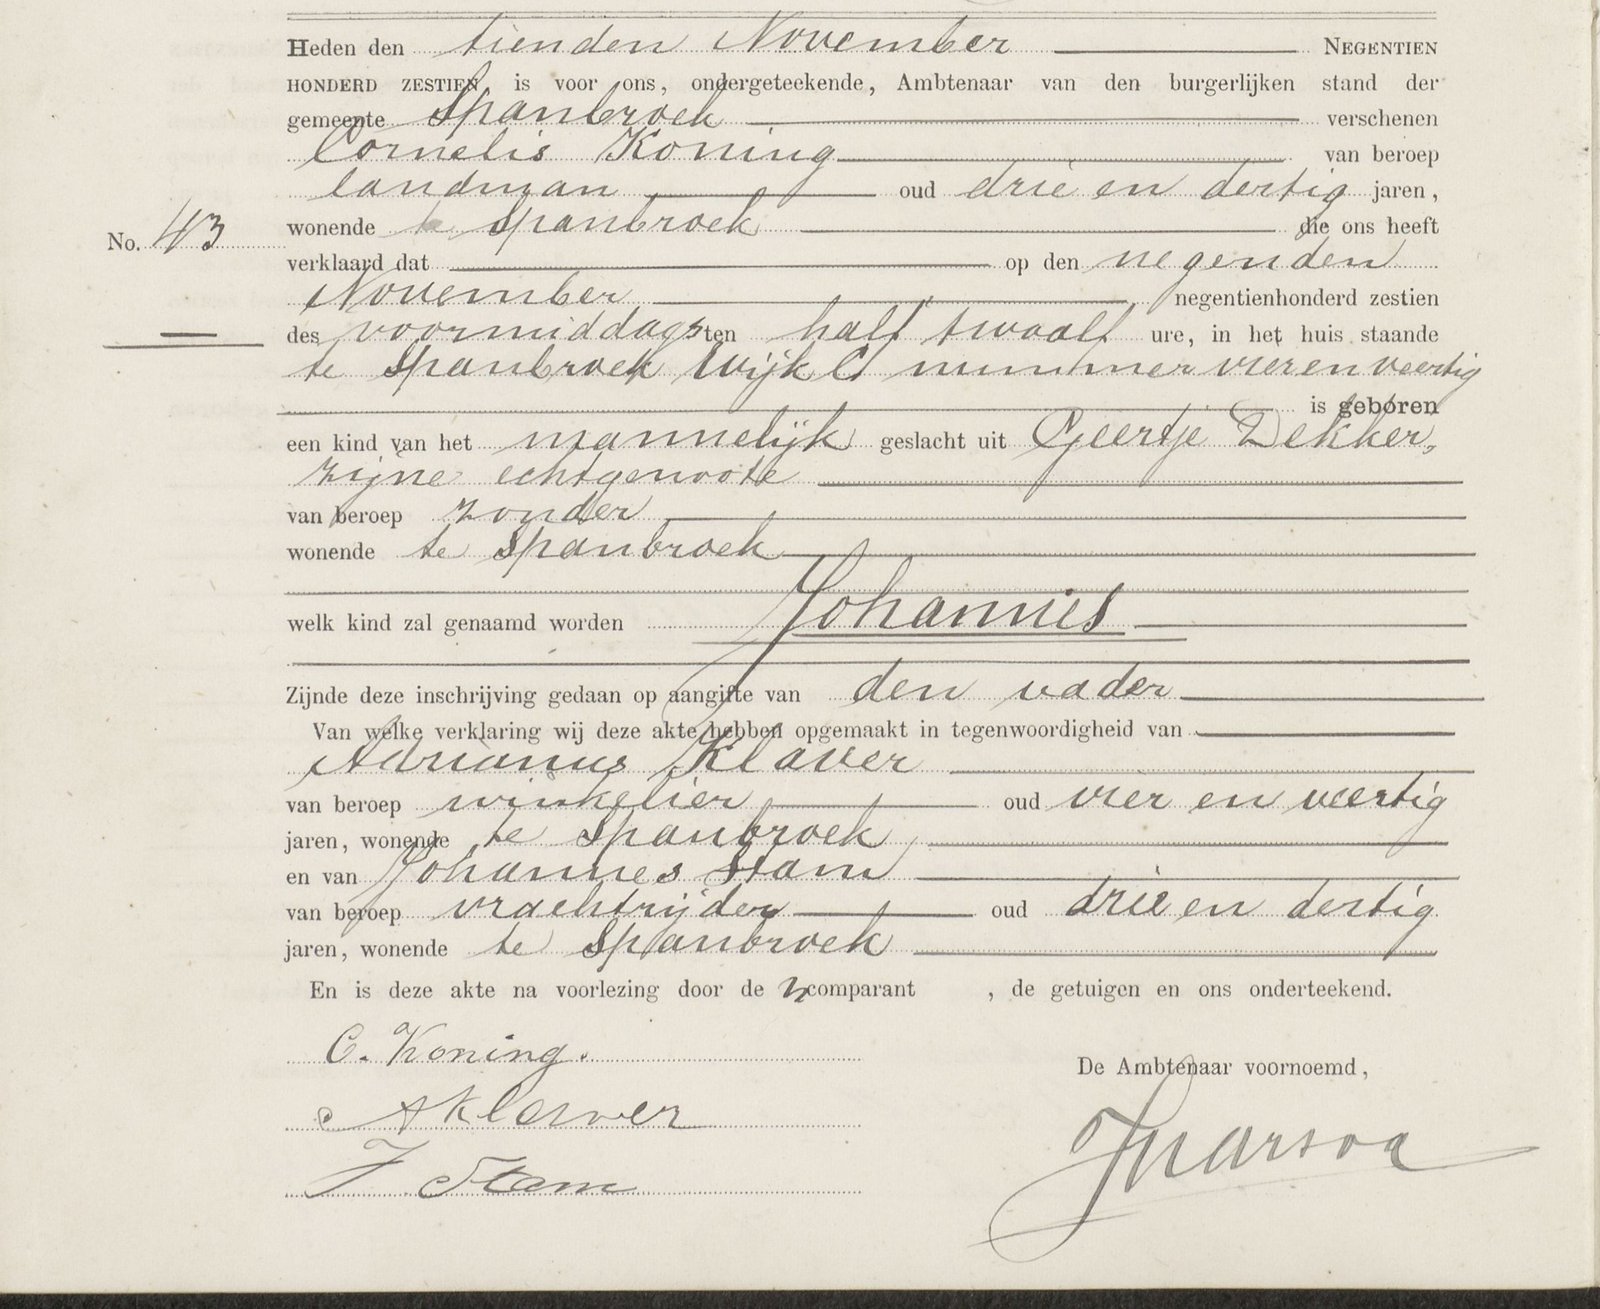 Heden den tienden November NEGENTIEN
HONDERD ZESTIEN is voor ons, ondergeteekende, Ambtenaar van den burgerlijken stand der
gemeente Spanbroek verschenen
Cornelis Koning van beroep
landman oud drie en dertig jaren,
No. 43 wonende te Spanbroek die ons heeft
verklaard dat op den negenden
November negentienhonderd zestien
des voormiddags ten half twaalf ure, in het huis staande
te Spanbroek Wijk C nummer vier en veertig
is geboren
een kind van het mannelijk geslacht uit Geertje Dekker,
zijne echtgenoote
van beroep zonder
wonende te Spanbroek
welk kind zal genaamd worden Johannes
Zijnde deze inschrijving gedaan op aangifte van den vader
Van welke verklaring wij deze akte hebben opgemaakt in tegenwoordigheid van
Adrianus Klaver
van beroep winkelier oud vier en veertig
jaren, wonende te Spanbroek
en van Johannes Stam
van beroep vrachtrijder oud drie en dertig
jaren, wonende te Spanbroek
En is deze akte na voorlezing door de n comparant , de getuigen en ons onderteekend.
C. Koning.
De Ambtenaar voornoemd,
A Klaver
J Stam